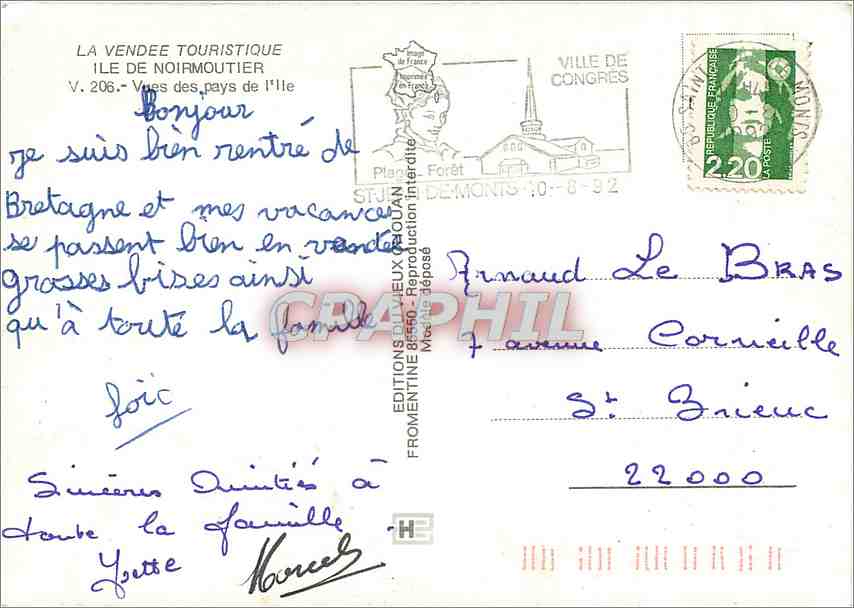 LA VENDEE TOURISTIQUE
ILE DE NOIRMOUTIER
V. 206.- Vues des pays de l'Ile
Bonjour
je suis bien rentré de
Bretagne et mes vacances
se passent bien en vendée
grosses bises ainsi
qu'à toute la famille
Loïc
Sincères Amitiés à
toute la famille.
Yvette Marcel
EDITIONS DU VIEUX CHOUAN
FROMENTINE 85550 - Reproduction interdite
Modèle déposé
HE
Image
de France
Imprimée
en France
VILLE DE
CONGRES
Plage - Forêt
ST-JEAN-DE-MONTS 10-8-92
REPUBLIQUE FRANÇAISE
2,20
LA POSTE
MONTS
Arnaud Le BRAS
7 avenue Corneille
St Brieuc
22000
CPAPHIL